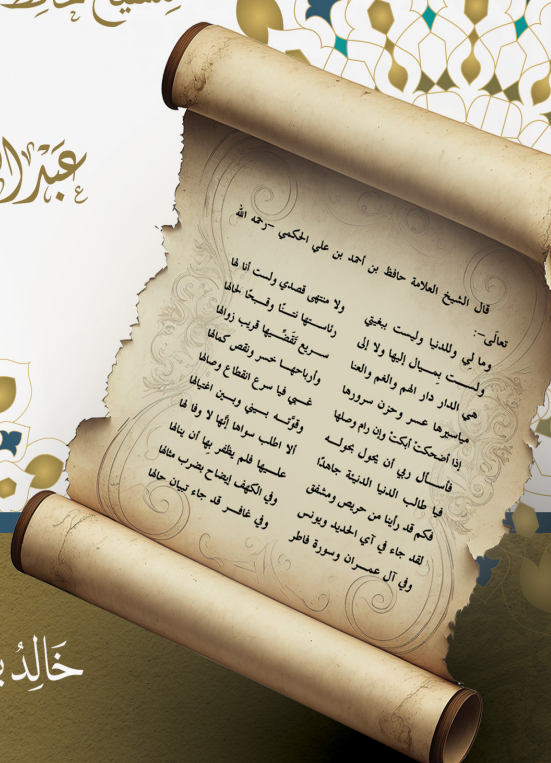 للشيخ حافظ
عبد
قال الشيخ العلامة حافظ بن أحمد بن علي الحكمي -رحمه الله
تعالَى-:
وما لِي وللدنيا وليست ببغيتي ولا منتهى قصدي ولست أنا لها
ولست بِميال إليها ولا إلى رئاستها نتنًا وقبحًا لحالها
هي الدار دار الهم والغم والعنا سريع تقضِّيها قريب زوالها
مياسيرها عسر وحزن سرورها وأرباحها خسر ونقص كمالها
إذا أضحكت أبكت وإن رام وصلها غبي فيا سرع انقطاع وصالها
فأسأل ربي أن يحول بحوله وقوَّته بيني وبين اغتيالها
فيا طالب الدنيا الدنيئة جاهدًا ألا اطلب سواها إنَّها لا وفا لها
فكم قد رأينا من حريص ومشفق عليها فلم يظفر بِها أن ينالها
لقد جاء في آي الحديد ويونس وفي الكهف إيضاح بضرب مثالها
وفي آل عمران وسورة فاطر وفي غافر قد جاء تبيان حالها
خَالِدُ